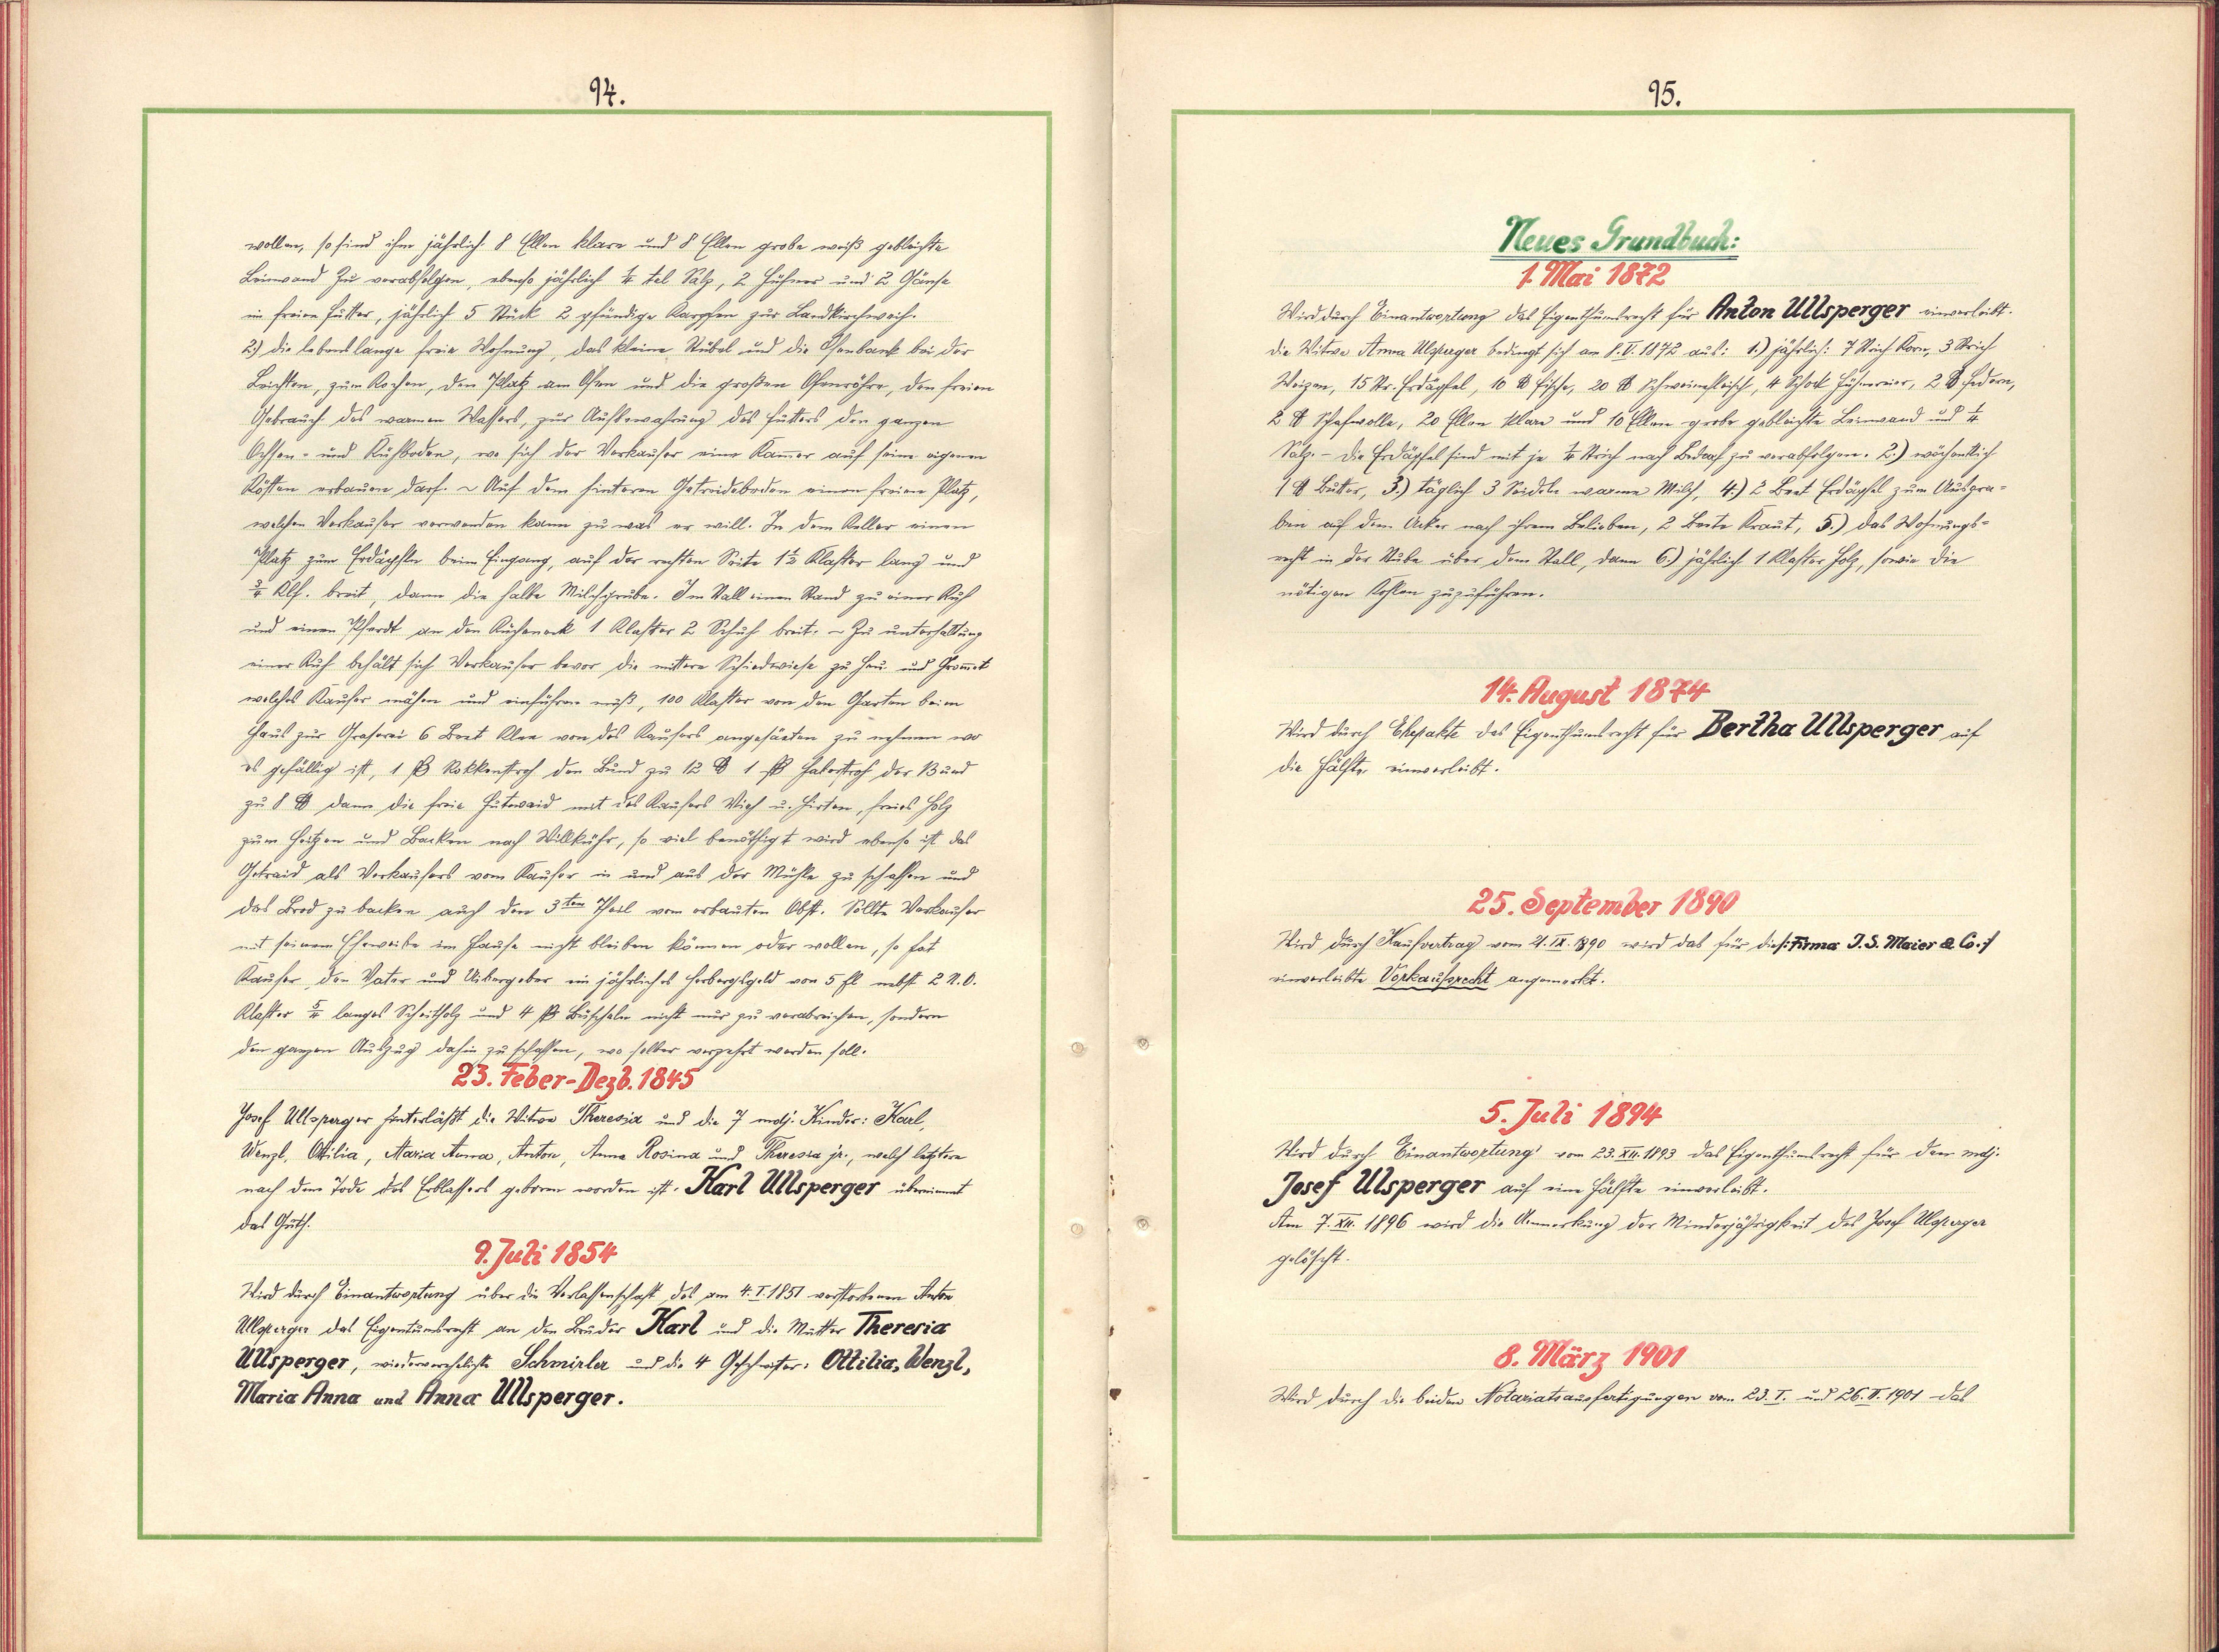 94.
wollen, so sind ihm jährlich: 8 Ellen klare und 8 Ellen grobe weiß gebleichte
Leinwand zu verabfolgen, ebenso jährlich ¼ tel Salz, 2 Hühner und 2 Gänse
in freien Futter, jährlich 5 Stück 2 pfündige Karpfen zur Landkirchweih.
2.) die lebenslange freie Wohnung, das kleine Stübel und die Ofenbank bei der
Leichten, zum Kochen, den Platz am Ofen und die großen Ofenröhre, den freien
Gebrauch des warmen Wassers, zur Aufbewahrung des Futters den ganzen
Ochsen- und Kuhboden, wo sich der Verkaufer eine Kamer auf seine eigenen
Kösten erbauen darf. ~ Auf dem hinteren Getreideboden einen freien Platz,
welchen Verkaufer verwenden kann zu was er will. In dem Keller einen
Platz zum Erdäpfeln beim Eingang, auf der rechten Seite 1½ Klafter lang und
¾ Klf. breit, dann die halbe Milchgrube. Im Stall einen Stand zu einer Kuh
und einen Pferdt an den Küheneck 1 Klafter 2 Schuh breit. ~ Zu unterhaltung
einer Kuh behält sich Verkaufer bevor die mittere Schiedwiese zu Heu und Gromet
welches Kaufer mähen und einführen muß, 100 Klafter von den Garten beim
Haus zur Graserei 6 Beet Klee von des Kaufers angesäeten zu nehmen wo
es gefällig ist, 1 ß Rokkenstroh den Bund zu 12 ℔ 1 ß Haberstroh der Bund
zu 8 ℔ dann die freie Hutwaid mit des Kaufers Vieh u. Hirten, freies Holz
zum Heitzen und Backen nach Willkühr, so viel benöthigt wird ebenso ist das
Getraid als Verkaufers vom Kaufer in und aus der Mühle zu schaffen und
das Brod zu backen auch den 3ten Theil vom erbauten Obst. Sollte Verkaufer
mit seinem Eheweibe im Hause nicht bleiben können oder wollen, so hat
Kaufer, den Vater und Uibergeber ein jährliches Herbergsgeld von 5 fl nebst 2 N.Ö.
Klafter 5/4 langes Scheitholz und 4 ß Büscheln nicht nur zu verabreichen, sondern
den ganzen Auszug dahin zu schaffen, wo selber verzehrt werden soll.
23. Feber-Dezb. 1845
Josef Ullsperger hinterläßt die Witwe Theresia und die 7 mdj. Kinder: Karl,
Wenzl, Ottilia, Maria Anna, Anton, Anna Rosina und Theresia jr., welch letztere
nach dem Tode des Erblassers geboren worden ist. Karl Ullsperger übernimmt
das Guth.
9. Juli 1854
Wird durch Einantwortung über die Verlassenschaft des am 4.I.1851 verstorbenen Anton
Ullsperger das Eigentumsrecht an den Bruder Karl und die Mutter Theresia
Ullsperger, wiederverehelichte Schmirler und die 4 Geschwister: Ottilia, Wenzl,
Maria Anna und Anna Ullsperger.
95.
Neues Grundbuch:
1. Mai 1872
Wird durch Einantwortung das Eigenthumsrecht für Anton Ullsperger einverleibt.
Die Witwe Anna Ulsperger bedingt sich am 8.V.1872 aus: 1.) jährlich: 7 Strich Korn, 3 Strich
Weizen, 15 Str. Erdäpfel, 10 ℔ Fische, 20 ℔ Schweinefleisch, 4 Schock Hühnereier, 2 ℔ Federn,
2 ℔ Schafwolle, 20 Ellen klare und 10 Ellen grobe gebleichte Leinwand und ¼
Salz. - Die Erdäpfel sind mit je ¼ Strich nach Bedarf zu verabfolgen. 2.) wöchentlich
1 ℔ Butter, 3.) täglich 3 Seideln warme Milch, 4.) 2 Beet Erdäpfel zum Ausgra=
ben auf dem Acker nach ihrem Belieben, 2 Beete Kraut, 5.) das Wohnungs=
recht in der Stube über dem Stall, dann 6.) jährlich 1 Klafter Holz, sowie die
nötigen Kohlen zuzuführen.
14. August 1874
Wird durch Ehepakte das Eigenthumsrecht für Bertha Ullsperger auf
die Hälfte einverleibt.
25. September 1890
Wird durch Kaufvertrag vom 21.IX.1890 wird das für die f: Firma J. S. Maier & Co. :f
einverleibte Vorkaufsrecht angemerkt.
5. Juli 1894
Wird durch Einantwortung vom 23.XII.1893 das Eigenthumsrecht für den mdj.
Josef Ulsperger auf eine Hälfte einverleibt.
Am 7.XII.1896 wird die Anmerkung der Minderjährigkeit des Josef Ulsperger
gelöscht.
8. März 1901
Wird durch die beiden Notariatsausfertigungen vom 23.I. und 26.II.1901 das